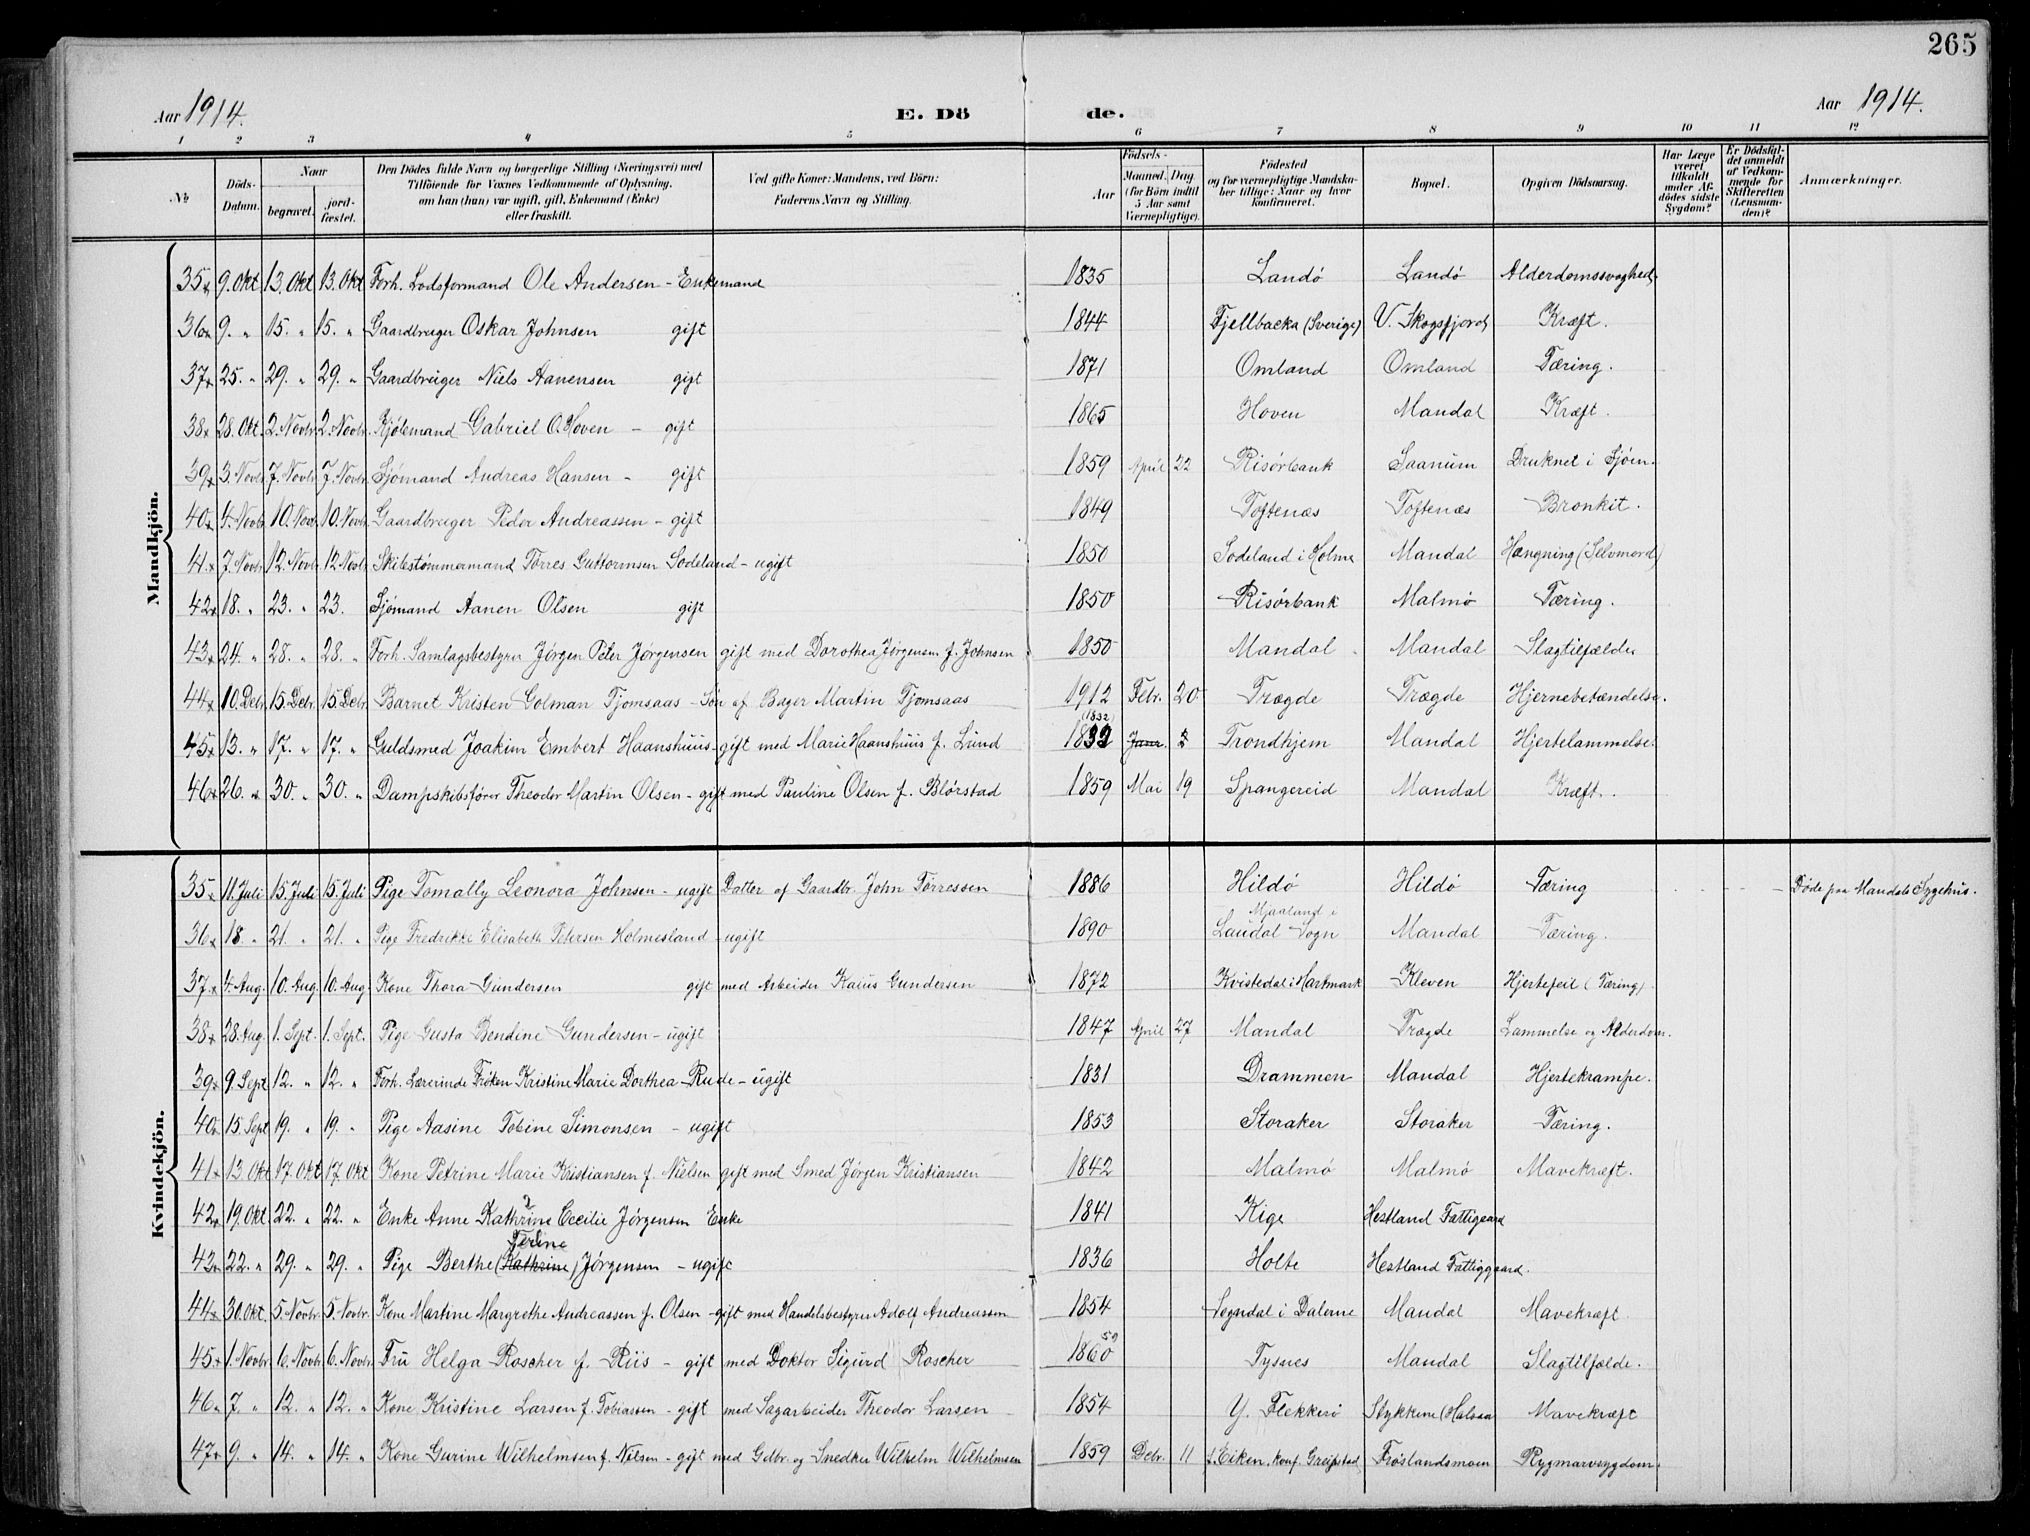 265
Aar 1914. E. Dö de. Aar 1914.
1 2 3 4 5 6 7 8 9 10 11 12
No Döds-Datum. Naar begravet. jord-fæstet. Den Dödes fulde Navn og borgerlige Stilling (Næringsvei) med Tilföiende for Voxnes Vedkommende af Oplysning, om han (hun) var ugift, gift, Enkemand (Enke) eller fraskilt. Ved gifte Koner: Mandens, ved Börn: Faderens Navn og Stilling. Födsels- Aar Maaned. Dag. (for Börn indtil 5 Aar samt Værnepligtige). Födested og for værnepligtige Mandskaber tillige: Naar og hvor konfirmeret. Bopæl. Opgiven Dödsaarsag. Har Læge været tilkaldt under Afdödes sidste Sygdom? Er Dödsfaldet anmeldt af Vedkommende for Skifteretten (Lensmanden)? Anmærkninger.
Mandkjön.
35 x 9. Okt 13. Okt 13. Okt Forh. Lodsformand Ole Andersen - Enkemand 1835 Landö Landö Alderdomssvaghed.
36 x 9. „ 15. „ 15. „ Gaardbruger Oskar Johnsen gift 1844 Fjellbacka (Sverige) V. Skogsfjord Kræft.
37 x 25. „ 29. „ 29. „ Gaardbruger Niels Aanensen gift 1871 Omland Omland Tæring.
38 x 28. Okt. 2. Novbr 2. Novbr. Kjölemand Gabriel O. Hoven - gift 1865 Hoven Mandal Kræft.
39 x 3. Novbr 7. Novbr 7. Novbr Sjömand Andreas Hansen - gift 1859 April 22 Risörbank Saanum Druknet i Sjöen.
40 x 4. Novbr 10. Novbr. 10. Novbr. Gaardbruger Peder Andreassen - gift 1849 Toftenæs Toftenæs Bronkit.
41. x 7. Novbr. 12. Novbr. 12. Novbr Skibstömmermand Törres Guttormsen Sodeland - ugift 1850 Sodeland i Holme Mandal Hængning (Selvmord)
42 x 18. „ 23. „ 23. Sjömand Aanen Olsen gift 1850 Risörbank Malmö Tæring.
43 x 24. „ 28. „ 28. „ Forh. Samlagsbestyrer Jörgen Peter Jörgensen gift med Dorothea Jörgensen f. Johnsen 1850 Mandal Mandal Slagtilfælde
44 x 10. Debr. 15. Debr. 15. Debr. Barnet Kristen Golman Tjomsaas - Sön af Bager Martin Tjomsaas 1912 Febr. 20 Trægde Trægde Hjernebetændelse.
1832
45 x 13. „ 17. „ 17. „ Guldsmed Joakim Embert Haanshuus - gift med Marie Haanshuus f. Lund 1832 Janr. 2 Trondhjem Mandal Hjertelammelse.
46 x 26. „ 30. „ 30. „ Dampskibsförer Theodor Martin Olsen - gift med Pauline Olsen f. Blörstad 1859 Mai 19 Spangereid Mandal Kræft.
Kvindekjön.
35 x 11. Juli 15. Juli 15. Juli Pige Tomally Leonora Johnsen - ugift Datter af Gaardbr. John Törressen 1886 Hildö Hildö Tæring Döde paa Mandals Sygehus.
Mjaaland i
36 x 18. „ 21. „ 21. „ Pige Fredrikke Elisabeth Petersen Holmesland - ugift 1890 Laudal Sogn Mandal Tæring.
37 x 4. Aug. 10. Aug. 10. Aug. Kone Thora Gundersen gift med Arbeider Kaius Gundersen 1872 Kvistedal i Harkmark Kleven Hjertefeil (Tæring)
38 x 28. Aug. 1. Sept. 1. Sept. Pige Gusta Bendine Gundersen - ugift 1847 April 27 Mandal Trægde Lammelse og Alderdom.
39 x 9. Sept 12. „ 12. „ Forh. Lærerinde Fröken Kristine Marie Dorthea Rude - ugift 1831 Drammen Mandal Hjertekrampe.
40 x 15. Sept 19. „ 19. „ Pige Aasine Tobine Simonsen - ugift 1853 Storaker Storaker Tæring.
41 x 13. Okt 17. Okt 17. Okt Kone Petrine Marie Kristiansen f. Nielsen gift med Smed Jörgen Kristiansen 1842 Malmö Malmö Mavekræft.
42 x 19. Okt. 22. „ 22. „ Enke Anne Kathrine Cecilie Jörgensen Enke 1841 Kige Hestland Fattiggaard
Terine
43 x 22. „ 29. „ 29. „ Pige Berthe (Kathrine) Jörgensen - ugift 1836 Holte Hestland Fattiggaard.
44 x 30. Okt. 5. Novbr. 5. Novbr. Kone Martine Margrethe Andreassen f. Olsen - gift med Handelsbestyrer Adolf Andreassen 1854 Sogndal i Dalerne Mandal Mavekræft
59
45 x 1. Novbr 6. Novbr. 6. Novbr. Fru Helga Roscher f. Riis - gift med Doktor Sigurd Roscher 1860 Tysnes Mandal Slagtilfælde.
46 x 7. „ 12. „ 12. „ Kone Kristine Larsen f. Tobiassen - gift med Sagarbeider Theodor Larsen 1854 Y. Flekkerö Stykkene (Halsaa Mavekræft
47 x 9. „ 14. „ 14. „ Kone Gurine Wilhelmsen f. Nilsen - gift med Gdbr. og Snedker Wilhelm Wilhelmsen 1859 Debr. 11 f. Eiken, konf. Greipstad Fröslandsmoen Rygmarvsygdom.